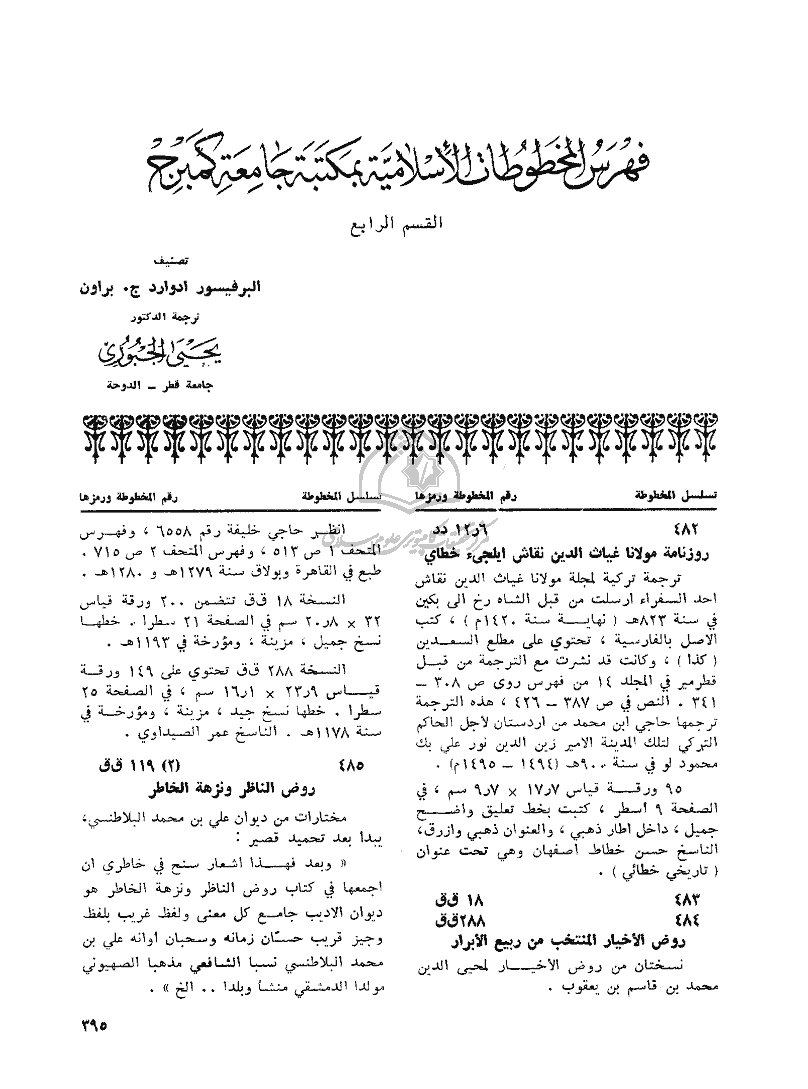 فهرس المخطوطات الأسلامية بمكتبة جامعة كمبرج
القسم الرابع
تصنيف
البرفيسور ادوارد ج. براون
ترجمة الدكتور
يحيى الجبوري
جامعة قطر ــ الدوحة
تسلسل المخطوطة رقم المخطوطة ورمزها
٤٨٢ ٦ر١٢ دد
روزنامة مولانا غياث الدين نقاش ايلجىء خطاي
ترجمة تركية لمجلة مولانا غياث الدين نقاش
احد السفراء ارسلت من قبل الشاه رخ الى بكين
في سنة ٨٢٣هـ ( نهايــة سنة ١٤٢٠م ) ، كتب
الاصل بالفارسية ، تحتوي على مطلع السعـدين
( كذا ) ، وكانت قد نشرت مع الترجمة من قبـل
قطرمير في المجلد ١٤ من فهرس روى ص ٣٠٨ ــ
٣٤١ . النص في ص ٣٨٧ ــ ٤٢٦ ، هذه الترجمة
ترجمها حاجي ابن محمد من اردستان لاجل الحاكم
التركي لتلك المدينة الامير زين الدين نور علي بك
محمود لو في سنة ٩٠٠هـ (١٤٩٤ ــ ١٤٩٥م) .
٩٥ ورقــة قياس ٧ر١٧ × ٧ر٩ سم ، في
الصفحة ٩ أسطر ، كتبت بخط تعليق واضــح
جميل ، داخل اطار ذهبي ، والعنوان ذهبي وازرق،
الناسخ حسن خطاط اصفهان وهي تحت عنوان
( تاريخي خطائي ) .
٤٨٣ ١٨ ق‌ق
٤٨٤ ٢٨٨ق‌ق
روض الأخيار المنتخب من ربيع الأبرار
نسختان من روض الاخيــار لمحيى الدين
محمد بن قاسم بن يعقوب .
تسلسل المخطوطة رقم المخطوطة ورمزها
انظر حاجي خليفة رقم ٦٥٥٨ ، وفهـرس
المتحف ١ ص ٥١٣ ، وفهرس المتحف ٢ ص ٧١٥ .
طبع في القاهرة وبولاق سنة ١٢٧٩هـ و ١٢٨٠هـ .
النسخة ١٨ ق‌ق تتضمن ٢٠٠ ورقة قياس
٣٢ × ٨ر٢٠ سم في الصفحة ٢١ سطرا . خطهـا
نسخ جميل ، مزينة ، ومؤرخة في ١١٩٣هـ .
النسخة ٢٨٨ ق‌ق تحتوي على ١٤٩ ورقـة
قيــاس ٩ر٢٣ × ١ر١٦ سم ، في الصفحة ٢٥
سطرا . خطها نسخ جيد ، مزينة ، ومؤرخـة في
سنة ١١٧٨هـ . الناسخ عمر الصيداوي .
٤٨٥ (٢) ١١٩ ق‌ق
روض الناظر ونزهة الخاطر
مختارات من ديوان علي بن محمد البلاطنسي،
يبدأ بعد تحميد قصير :
« وبعد فهــذا اشعار سنح في خاطري ان
اجمعها في كتاب روض الناظر ونزهة الخاطر هو
ديوان الاديب جامـع كل معنى ولفظ غريب بلفظ
وجيز قريب حسّان زمانه وسحبان اوانه علي بن
محمد البلاطنسي نسبا الشافعي مذهبا الصهيوني
مولدا الدمشقي منشأ وبلدا .. الخ » .
٣٩٥